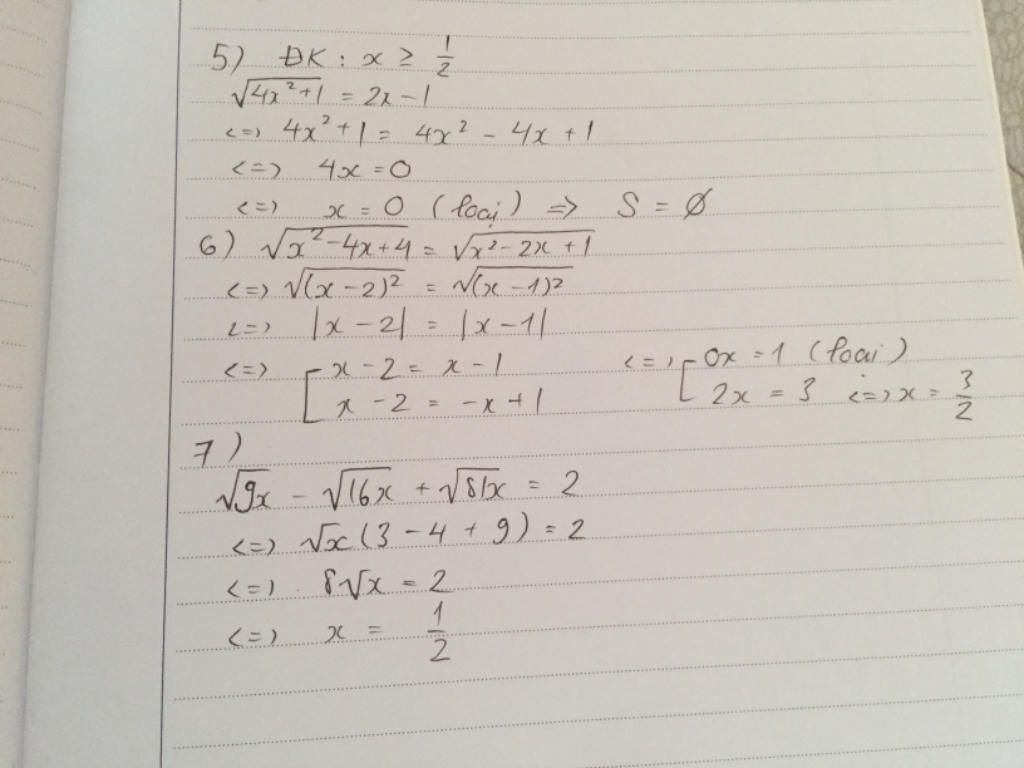 5) ĐK : x ≥ 1/2
√(4x²+1) = 2x-1
<=> 4x²+1 = 4x² - 4x + 1
<=> 4x = 0
<=> x = 0 (loại) => S = Ø
6) √(x²-4x+4) = √(x²-2x+1)
<=> √((x-2)²) = √((x-1)²)
<=> |x-2| = |x-1|
<=> [ x-2 = x-1 <=> [ 0x = 1 (loại)
x-2 = -x+1 2x = 3 <=> x = 3/2
7)
√(9x) - √(16x) + √(81x) = 2
<=> √x (3-4+9) = 2
<=> 8√x = 2
<=> x = 1/2